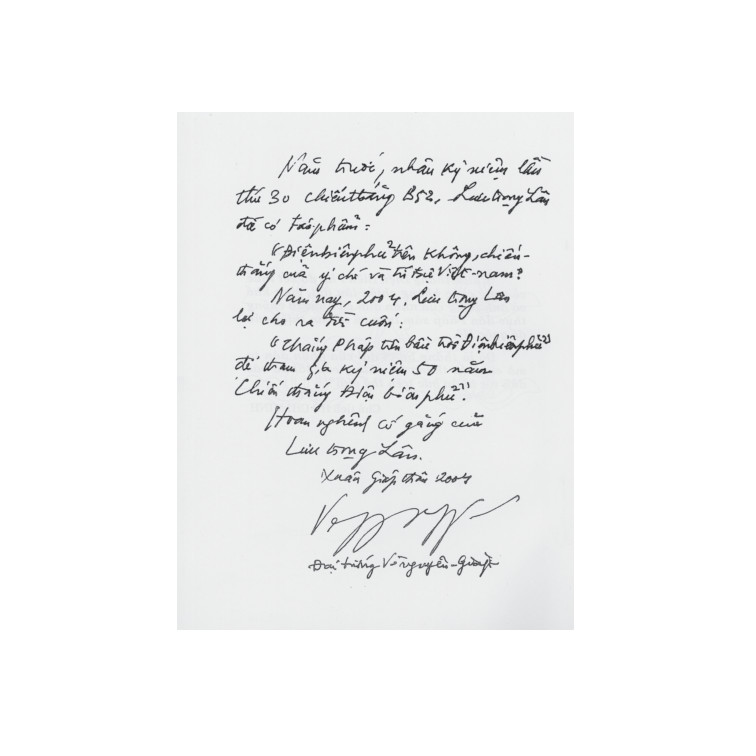 Năm trước, nhân kỷ niệm lần
thứ 30 chiến thắng B52, Lưu trọng Lân
đã có tác phẩm:
"Điện biên phủ trên không, chiến-
thắng của ý chí và trí tuệ Việt-nam"
Năm nay, 2004, Lưu trọng Lân
lại cho ra tiếp cuốn:
"Thắng Pháp trên bầu trời Điện biên phủ"
để tham gia kỷ niệm 50 năm
Chiến thắng Điện biên phủ".
Hoan nghênh cố gắng của
Lưu trọng Lân.
Xuân giáp thân 2004
Đại tướng Võ nguyên-Giáp